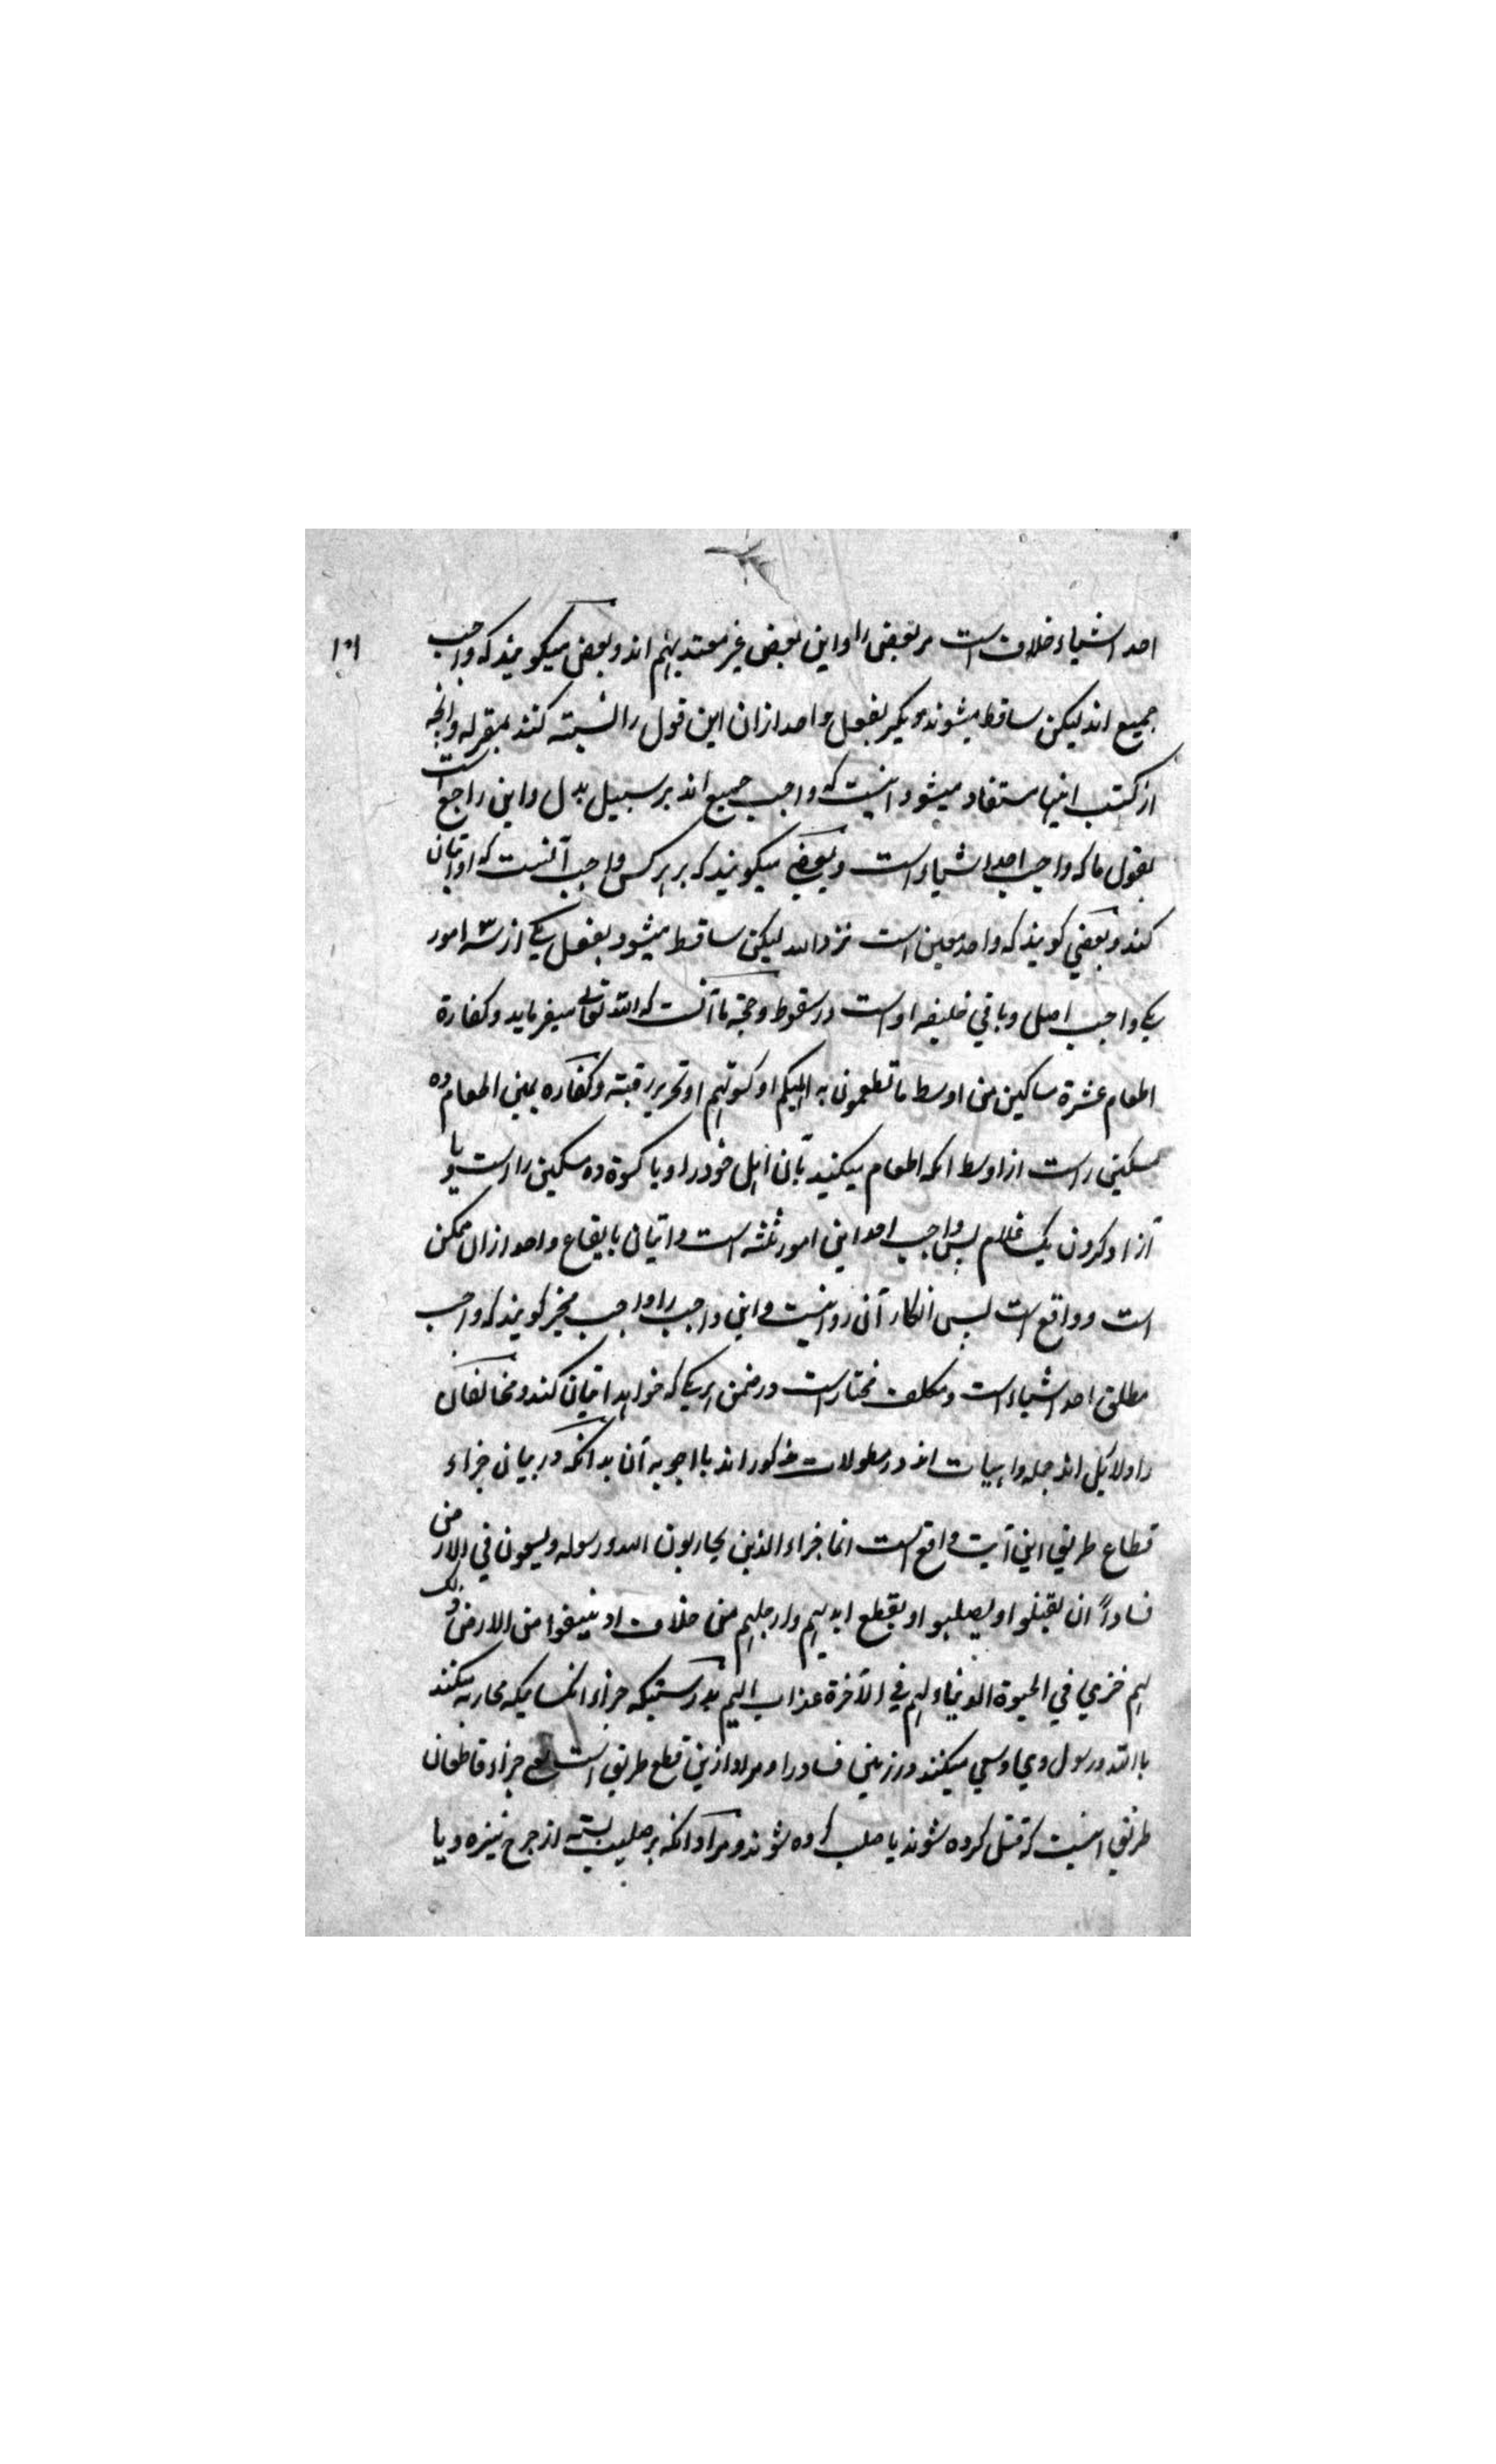 ۱۰۱
احد اشیاء خلاف است مر بعضی را و این بعض غیر معتد بهم اند و بعض میگویند که واجب
جمیع اند لیکن ساقط میشوند دیگر بفعل واحد ازان این قول را نسبته کنند بمعتزله و آنچه
از کتب اینها مستفاد میشود اینست که واجب جمیع اند بر سبیل بدل و این راجع است
بقول ما که واجب احد اشیاء است و بعضے میگویند که بر هر کس واجب آنست که او اتیان
کند و بعضی گویند که واحد معین است نزد الله لیکن ساقط میشود بفعل یکے از سه امور
یکے واجب اصل و باقی خلیفه او است در سقوط و حجة ما آنست که الله تعالی میفرماید و کفارة
اطعام عشرة مساکین من اوسط ما تطعمون به اهلیکم او کسوتهم او تحریر رقبته و کفاره یمین اطعام ده
مسکین راست از اوسط آنکه اطعام میکنید بآن اهل خود را و یا کسوة ده مسکین راست و یا
آزاد کردن یک غلام پس واجب احد این امور ثلثه است و اتیان بایقاع واحد ازان ممکن
است و واقع است پس انکار آن روا نیست و این واجب را واجب مخیر گویند که واجب
مطلق احد اشیاء است و مکلف مختار است در ضمن هر یکے که خواهد اتیان کند و مخالفان
را دلایل اند جمله واهیات اند در مطولات مذکور اند با اجوبه آن بدانکه در بیان جزاء
قطاع طریق این آیت واقع است انما جزاء الذین یحاربون الله و رسوله و یسعون فی الارض
فساداً ان یقتلوا او یصلبوا او یقطع ایدیهم و ارجلهم من خلاف او ینفوا من الارض ذلک
لهم خزی فی الحیوة الدنیا و لهم فی الآخرة عذاب الیم بدرستیکه جزاء آنکسانیکه محاربه میکنند
با الله و رسول وی و سعی میکنند در زمین فساد را و مراد ازین قطع طریق است یعنے جزاء قاطعان
طریق اینست که قتل کرده شوند یا صلب کرده شوند و مراد آنکه بر صلیب بسته از جرح نیزه و یا